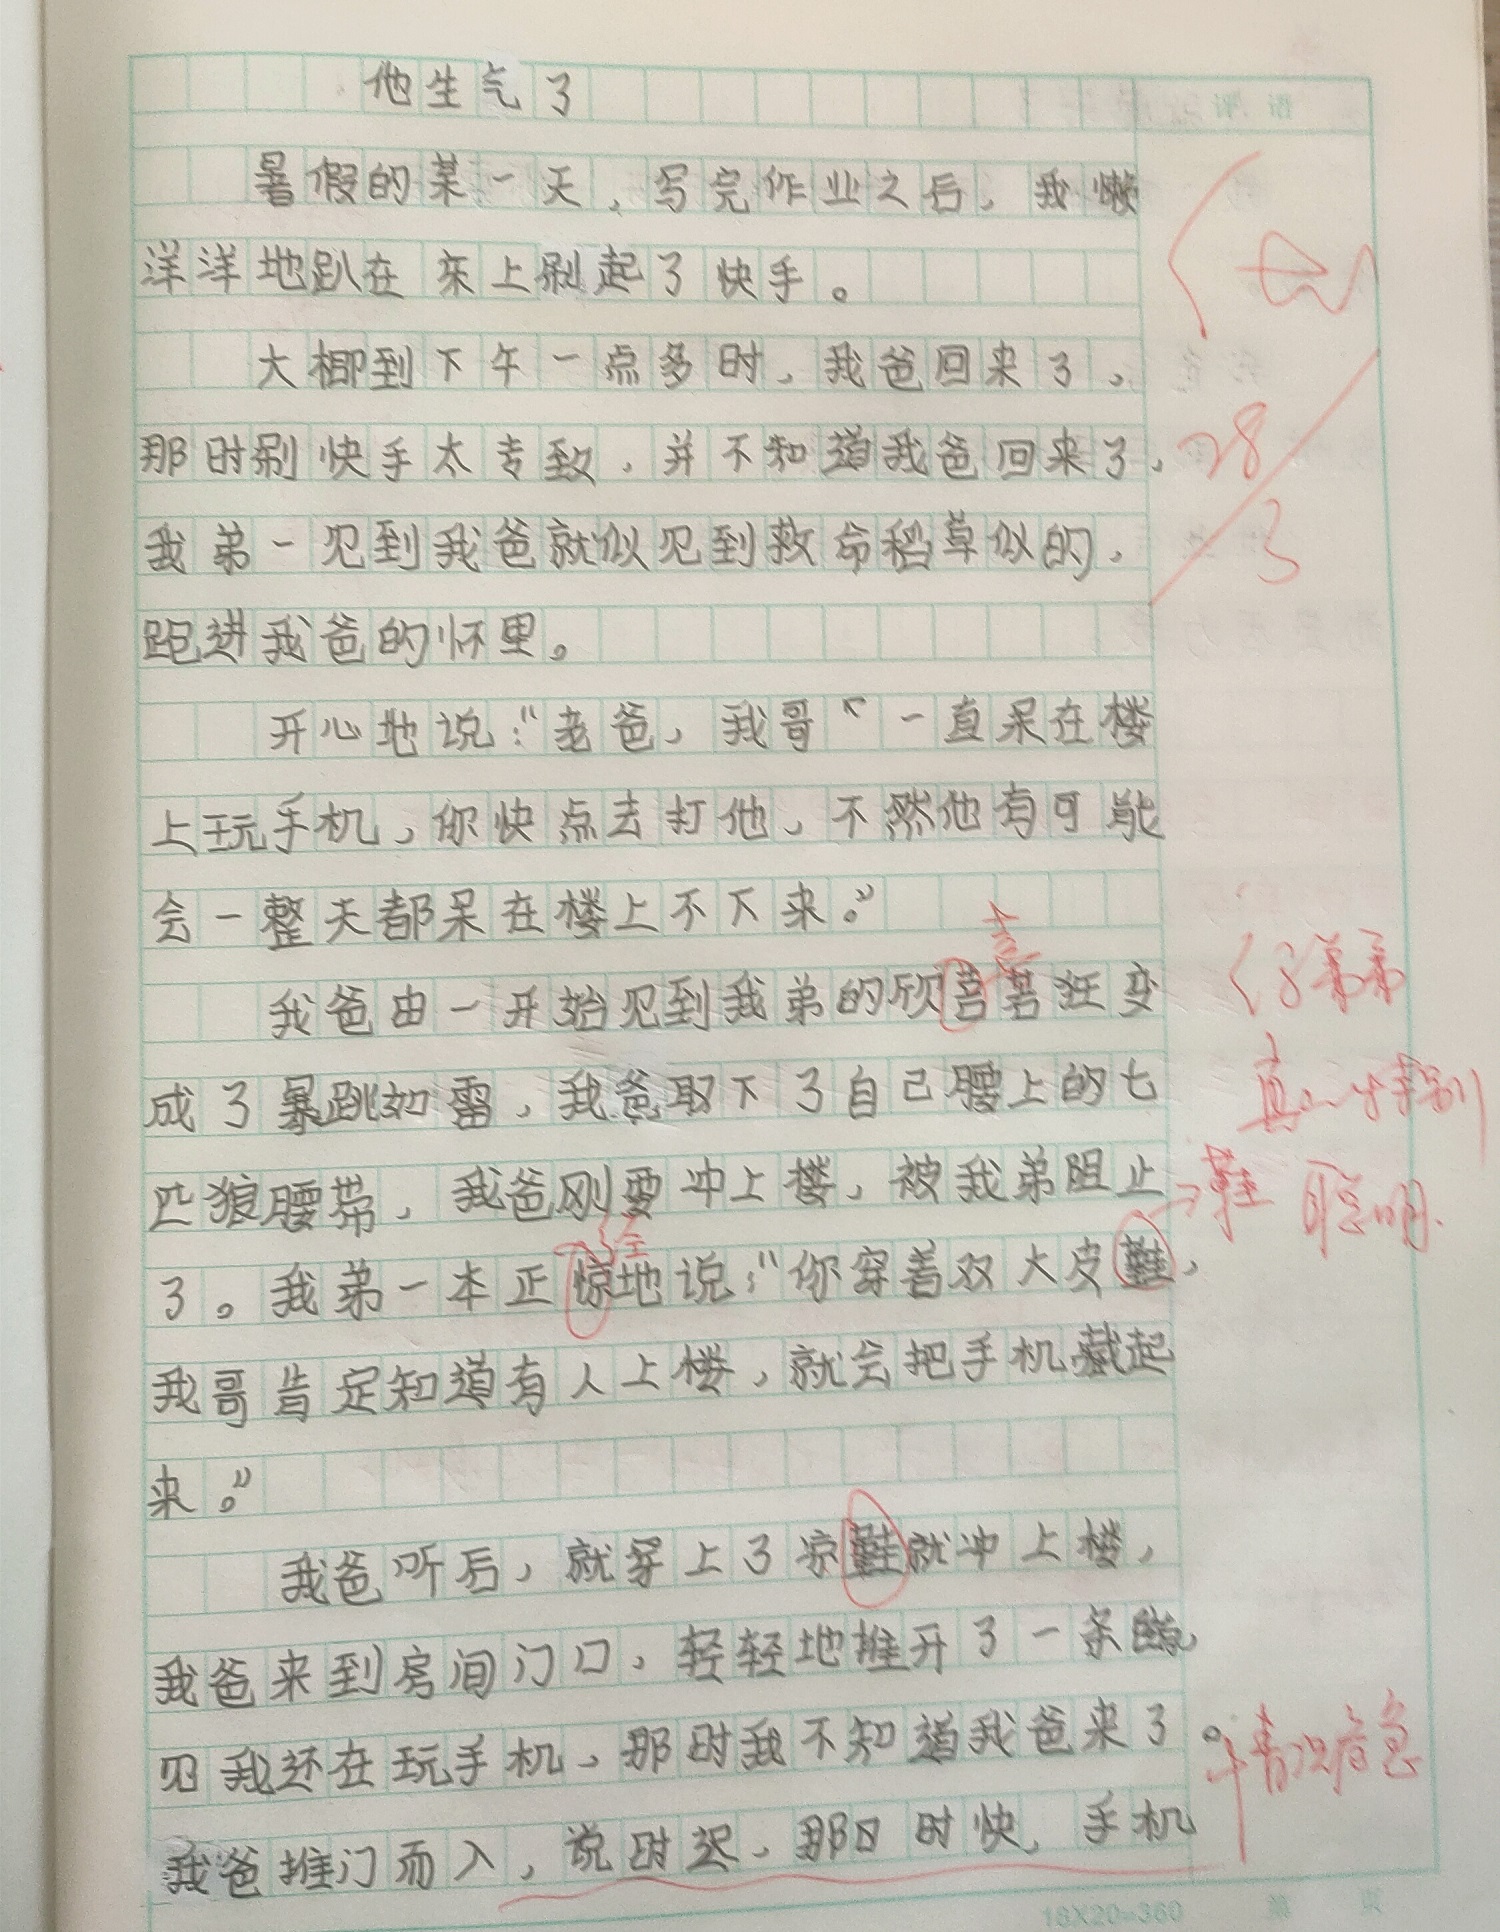 他生气了
评语
暑假的某一天，写完作业之后，我懒
洋洋地趴在床上刷起了快手。
大概到下午一点多时，我爸回来了，
那时刷快手太专致，并不知道我爸回来了，
28
3
我弟一见到我爸就似见到救命稻草似的，
跑进我爸的怀里。
开心地说：“老爸，我哥一直呆在楼
上玩手机，你快点去打他，不然他有可能
会一整天都呆在楼上不下来。”
喜
我爸由一开始见到我弟的欣喜若狂变
弟弟
成了暴跳如雷，我爸取下了自己腰上的七
真
匹狼腰带，我爸刚要冲上楼，被我弟阻止
鞋
聪明
经
了。我弟一本正惊地说：“你穿着双大皮鞋，
我哥肯定知道有人上楼，就会把手机藏起
来。”
我爸听后，就穿上了凉鞋就冲上楼，
我爸来到房间门口，轻轻地推开了一条
见我还在玩手机，那时我不知道我爸来了。
情况危急
我爸推门而入，说时迟，那时快，手机
18X20=360
第 页